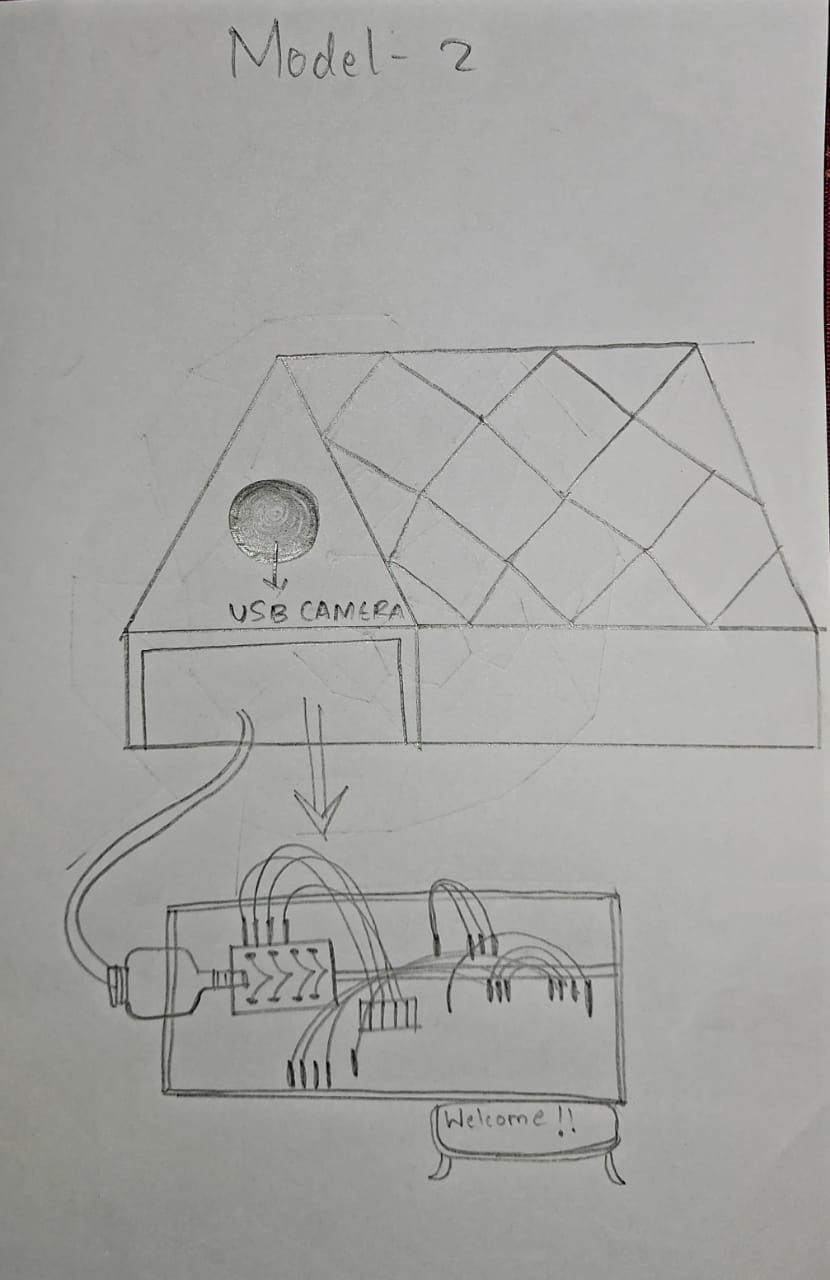 Model - 2
USB CAMERA
Welcome !!